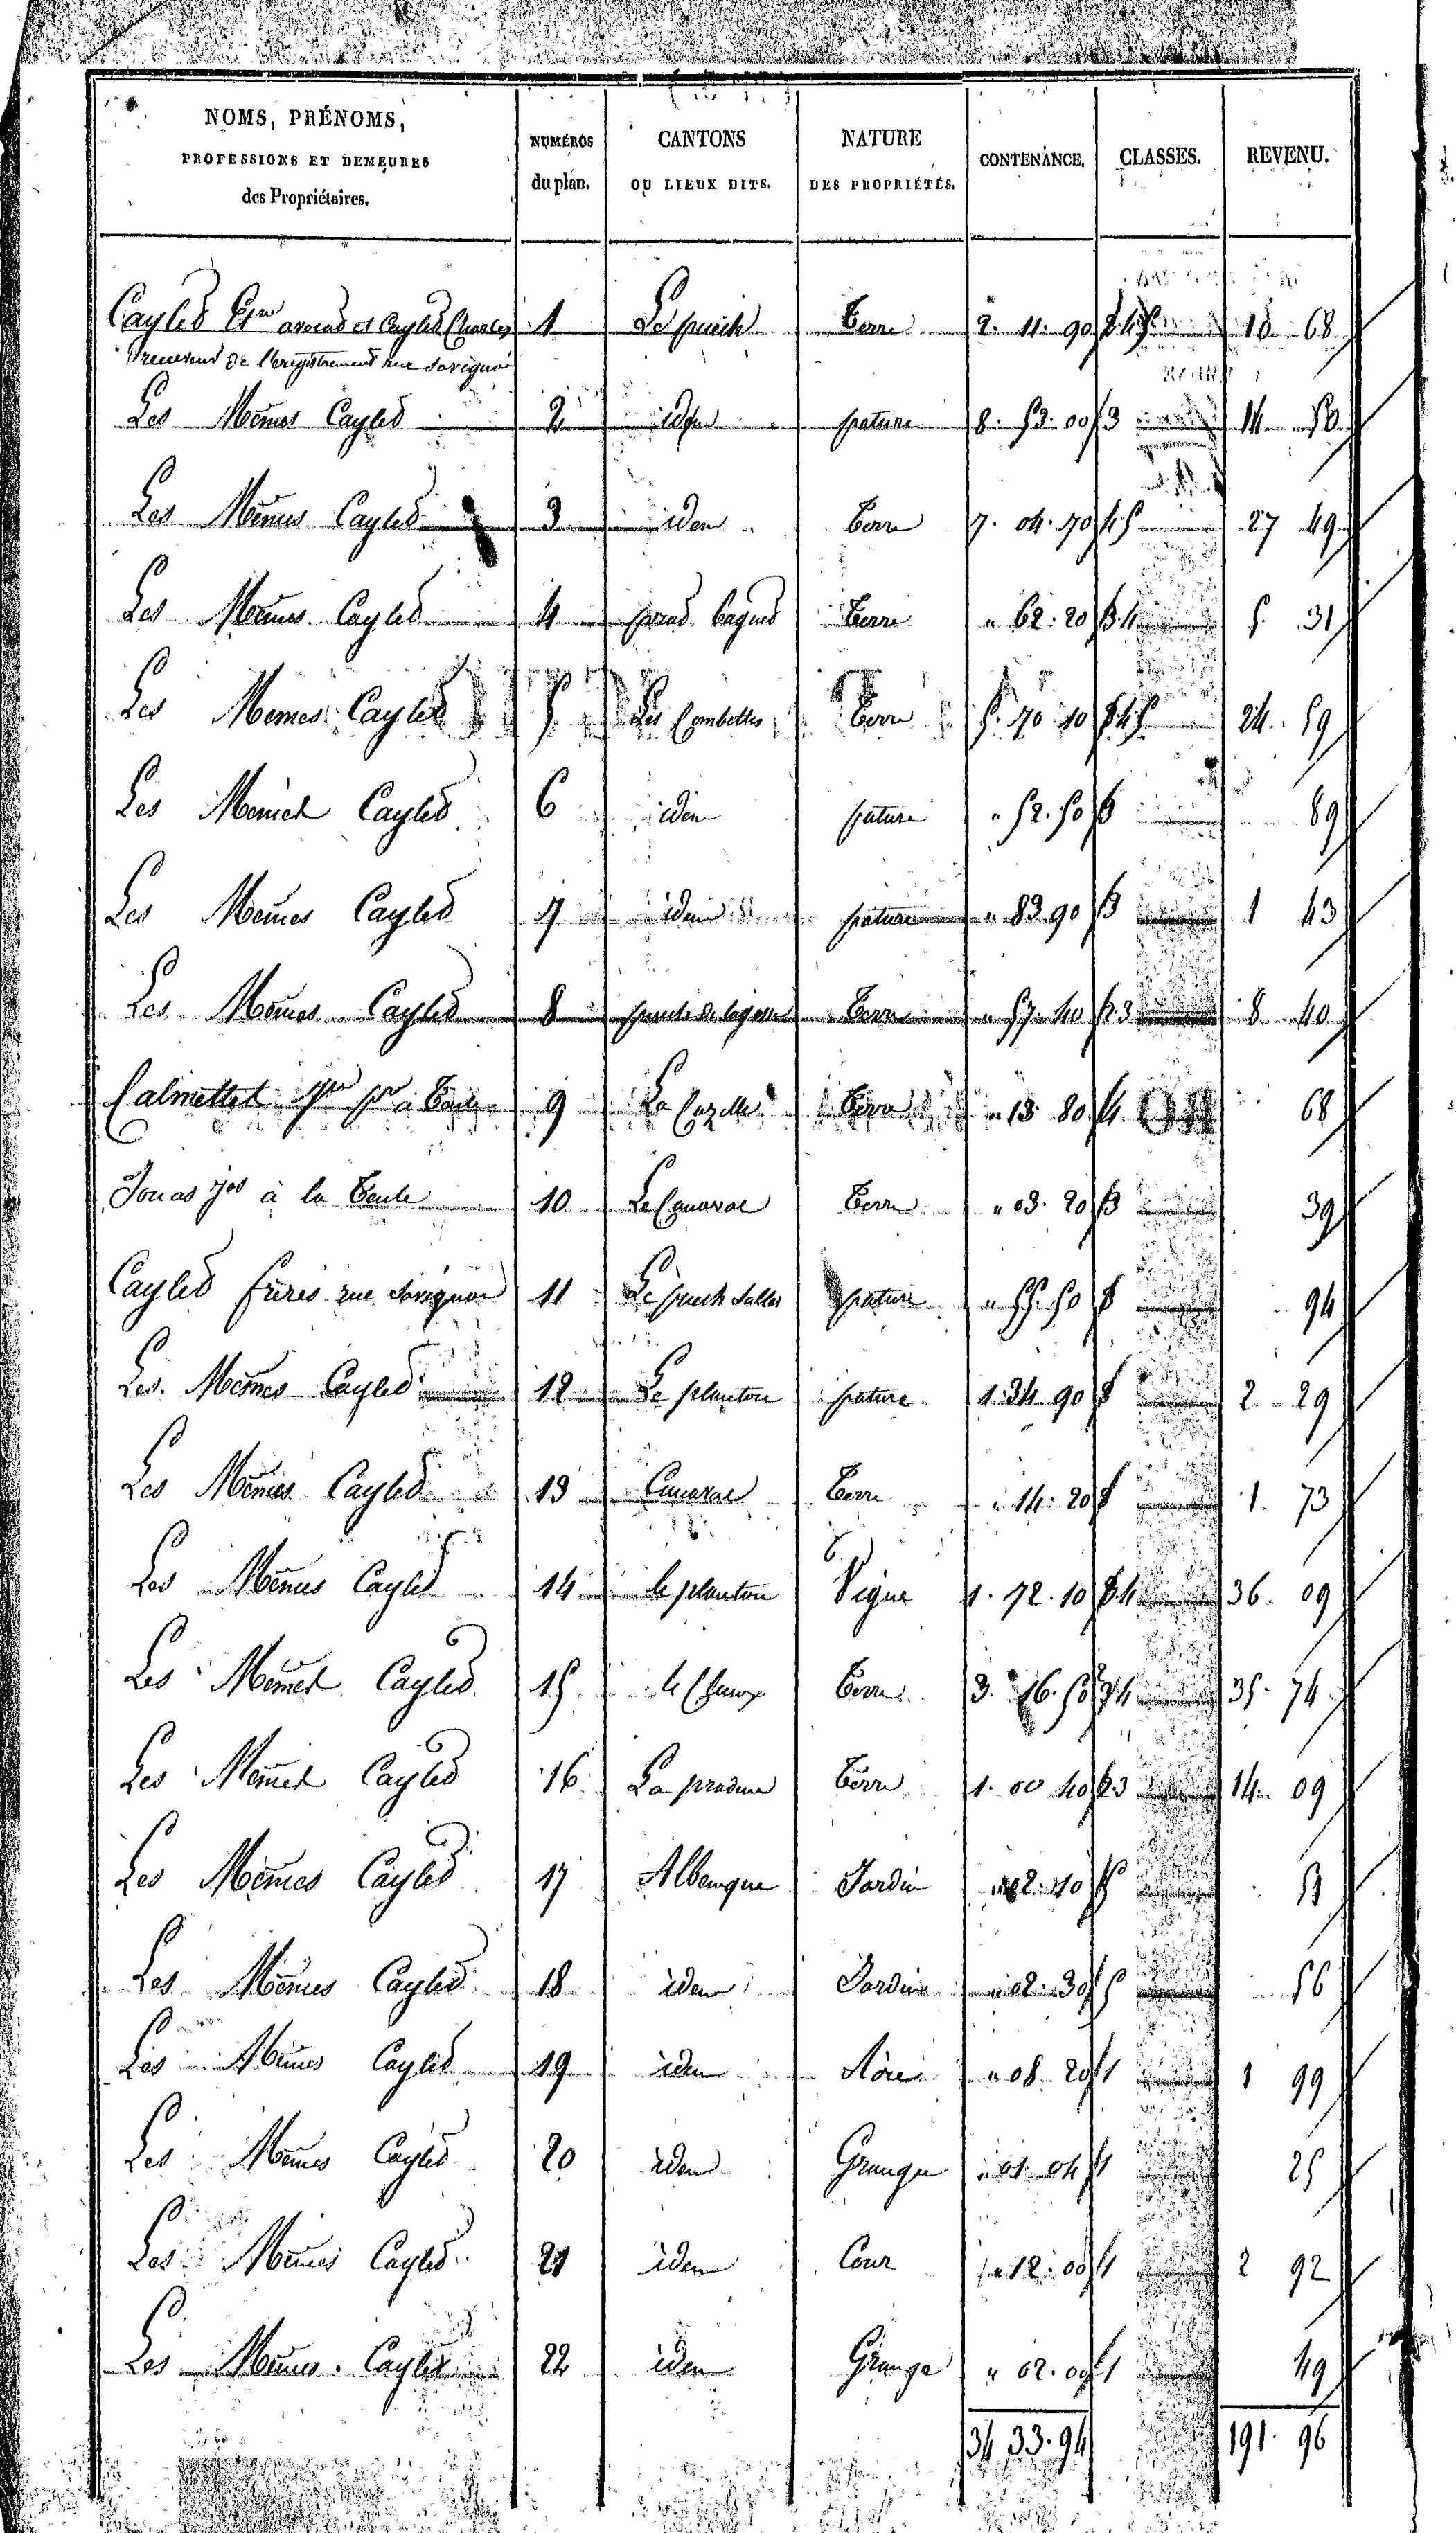 NOMS, PRÉNOMS,
PROFESSIONS ET DEMEURES
des Propriétaires.
NUMÉROS
du plan.
CANTONS
OU LIEUX DITS.
NATURE
DES PROPRIÉTÉS.
CONTENANCE.
CLASSES.
REVENU.
Cayled avocat et Cayled Charles 1 Le puech Terre 2. 11. 90 3.4.5 10 68
receveur de l'enregistrement rue Savignac
Les Mêmes Cayled 2 idem pature 8. 53. 00 3 14 50
Les Mêmes Cayled 3 idem Terre 7. 04. 70 4.5 27 49
Les Mêmes Cayled 4 prad Terre " 62. 20 3.4 5 31
Les Mêmes Cayled 5 Les Combettes Terre 5. 70 10 3.4.5 24 59
Les Mêmes Cayled 6 idem pature " 52. 50 3 89
Les Mêmes Cayled 7 idem pature " 83 90 3 1 43
Les Mêmes Cayled 8 Terre " 57. 40 2.3 8 40
Calmettes à 9 La Cazelle Terre " 13 80 4 68
Jouas à la 10 Le Canavac Terre " 03. 20 3 39
Cayled frères rue Savignac 11 Le puech pature " 55. 50 3 94
Les Mêmes Cayled 12 Le planton pature 1. 34 90 3 2 29
Les Mêmes Cayled 13 Canavac Terre " 14. 20 3 1 73
Les Mêmes Cayled 14 le planton Vigne 1. 72. 10 3.4 36 09
Les Mêmes Cayled 15 le Terre 3. 16. 50 2.3.4 35 74
Les Mêmes Cayled 16 La pradine Terre 1. 00 40 2.3 14 09
Les Mêmes Cayled 17 Albenque Jardin " 02. 10 5 51
Les Mêmes Cayled 18 idem Jardin " 02. 30 5 56
Les Mêmes Cayled 19 idem Aire " 08 20 1 1 99
Les Mêmes Cayled 20 idem Grange " 01 04 1 25
Les Mêmes Cayled 21 idem Cour " 12. 00 1 2 92
Les Mêmes Cayled 22 idem Grange " 02. 00 1 49
34 33. 94 191. 96